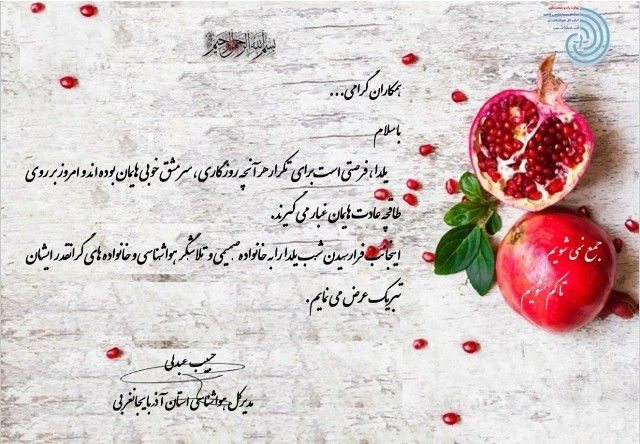 بسم الله الرحمن الرحیم
همکاران گرامی...
باسلام
یلدا، فرصتی است برای تکرار هر آنچه روزگاری، سرمشق خوبی هایمان بوده اند و امروز بر روی
طاقچه عادت هایمان غبار می گیرند.
اینجانب فرارسیدن شب یلدا را به خانواده صمیمی و تلاشگر هواشناسی و خانواده های گرانقدر ایشان
تبریک عرض می نمایم.
جمع نمی شویم
تا کم نشویم
حبیب عبدلی
مدیرکل هواشناسی استان آذربایجانغربی